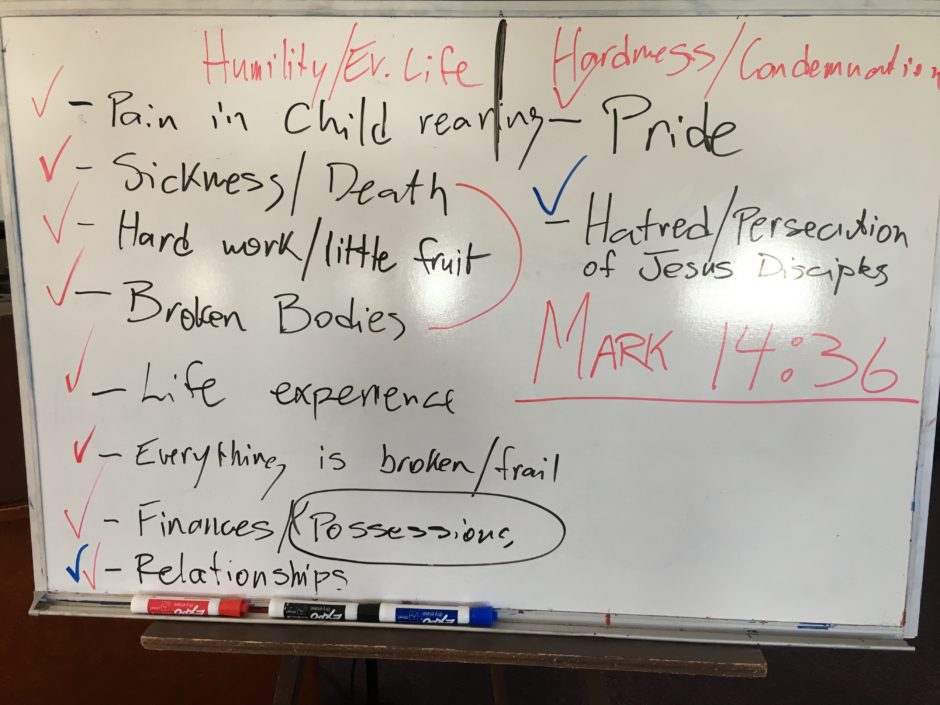 Humility/Ev. Life
- Pain in Child rearing
- Sickness/Death
- Hard work/little fruit
- Broken Bodies
- Life experience
- Everything is broken/frail
- Finances/Possessions
- Relationships
Hardness/Condemnation
- Pride
- Hatred/Persecution
of Jesus Disciples
MARK 14:36
EXPO
EXPO
EXPO